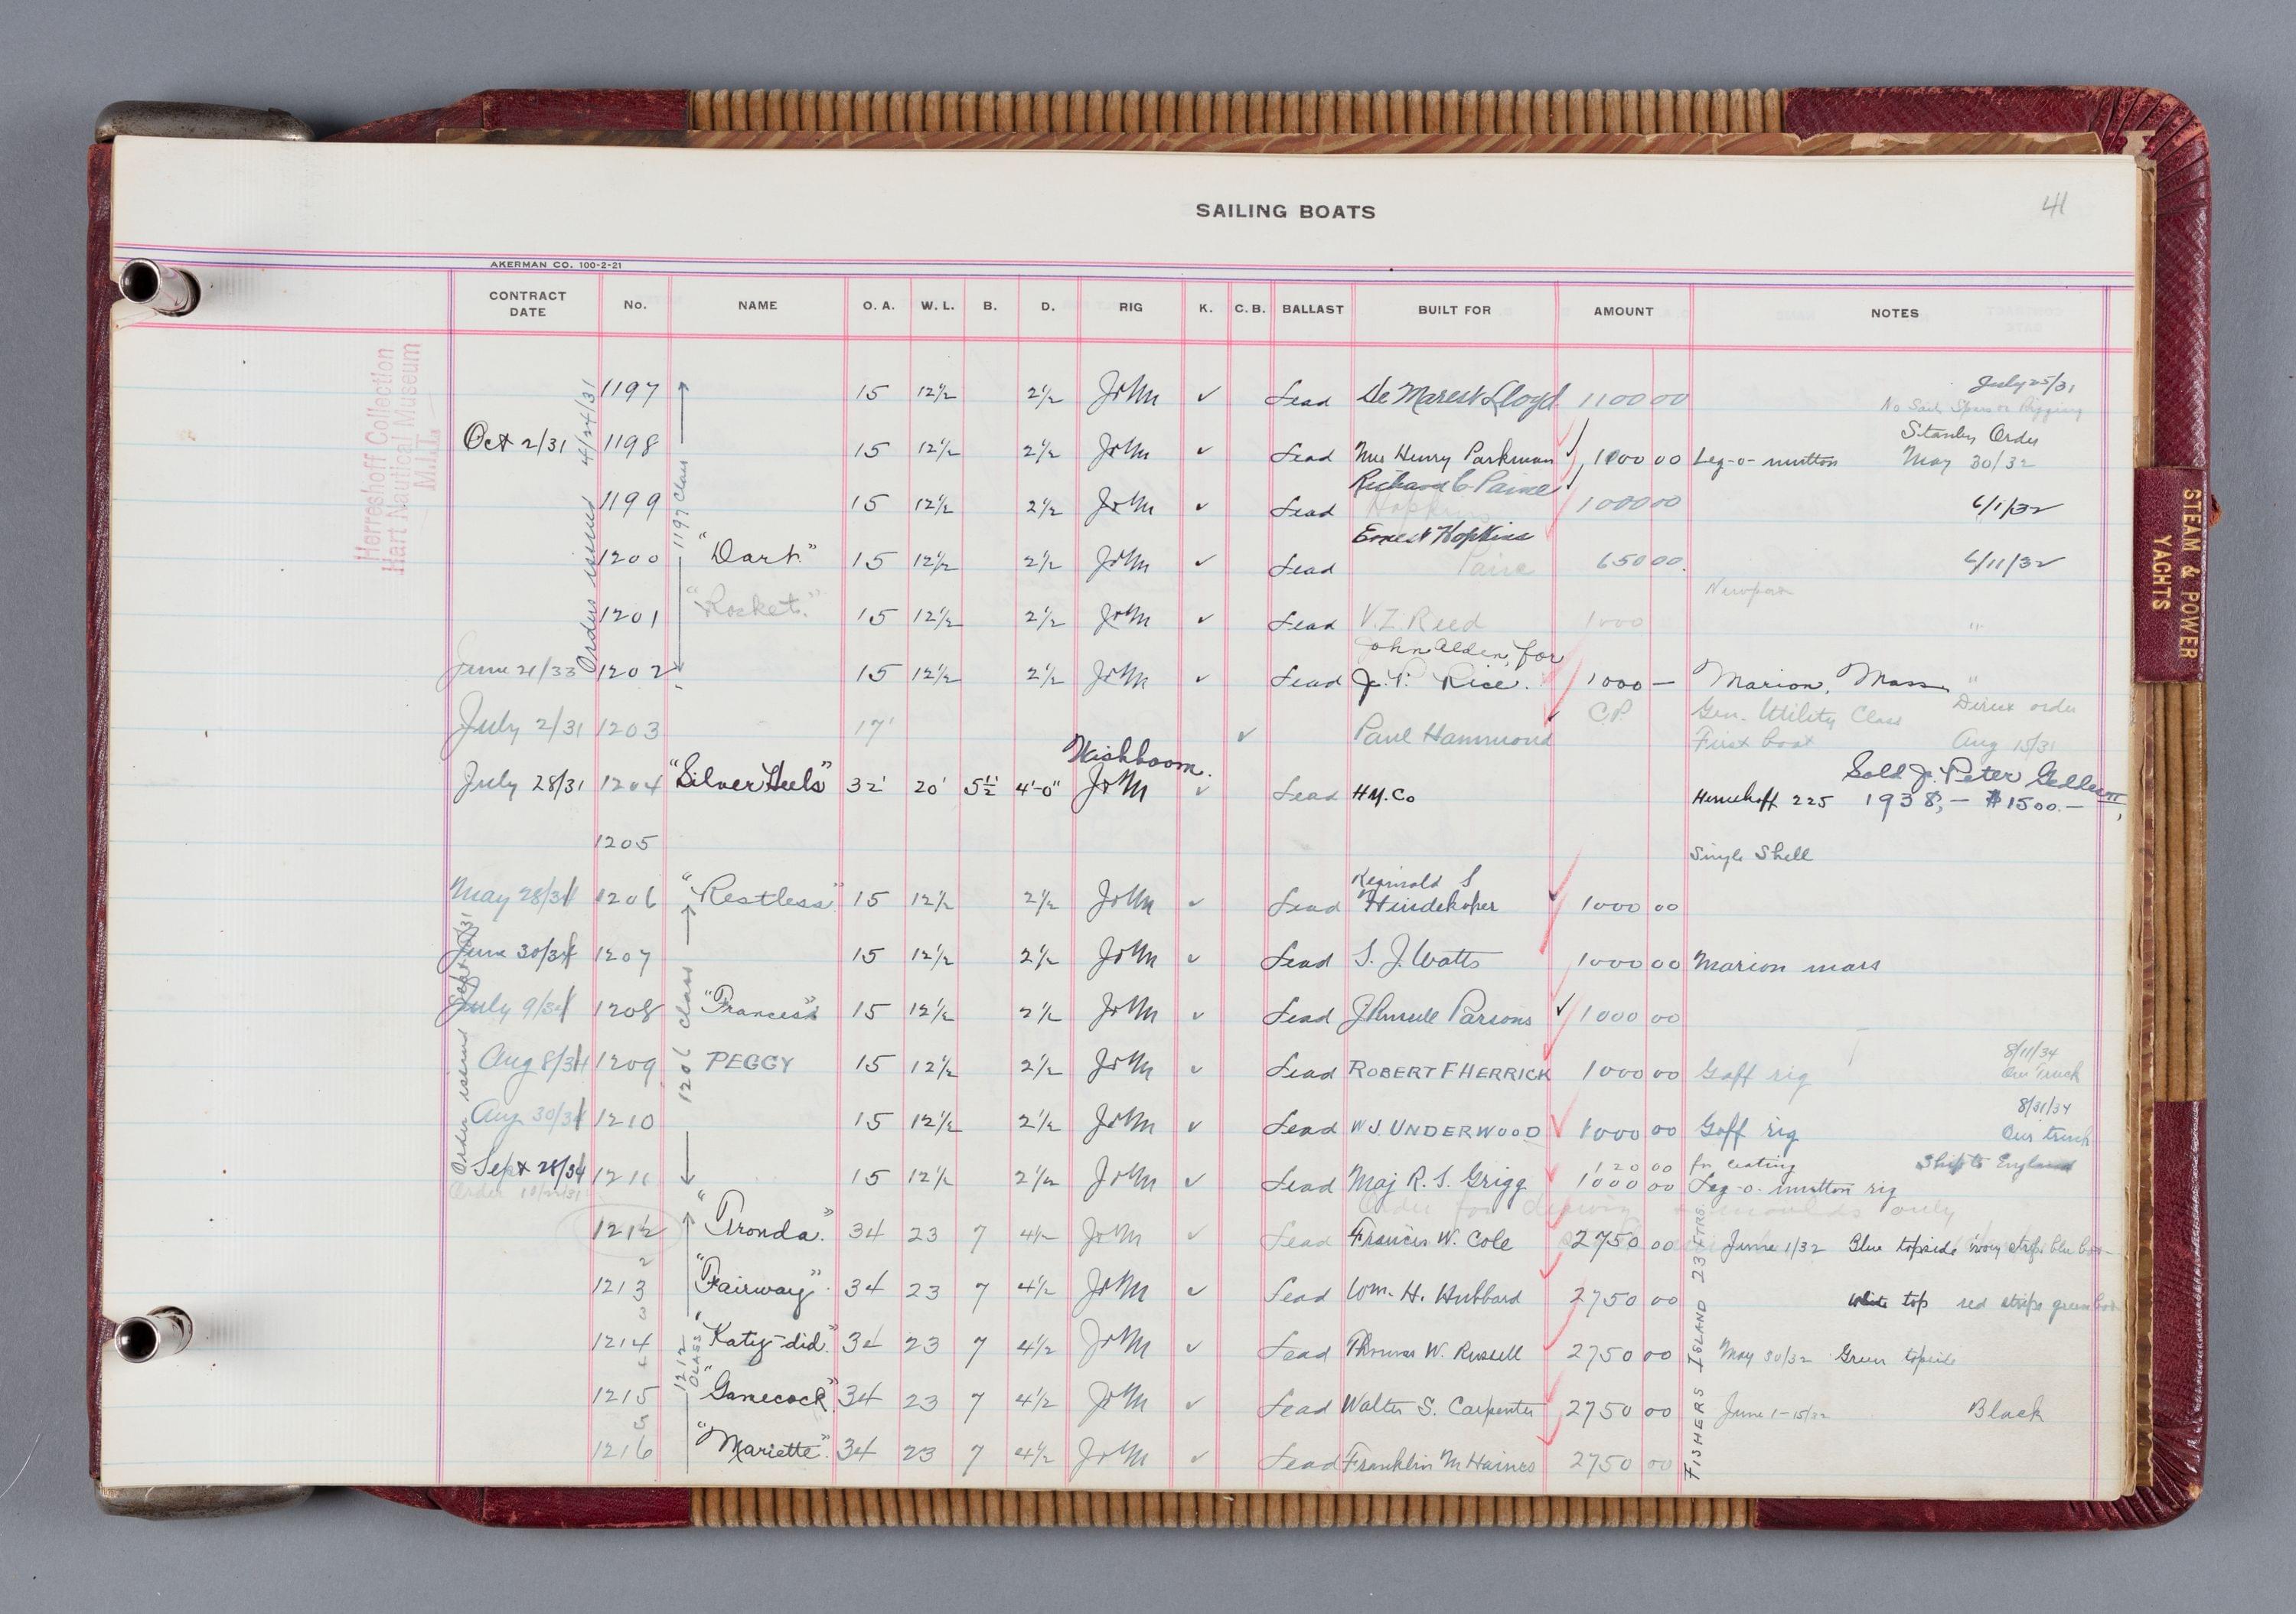 SAILING BOATS
41
AKERMAN CO. 100-2-21
CONTRACT DATE No. NAME O. A. W. L. B. D. RIG K. C. B. BALLAST BUILT FOR AMOUNT NOTES
Herreshoff Collection
Hart Nautical Museum
M.I.T.
Orders issued 4/24/31
1197 Class
July 25/31
1197 15 12½ 2½ J&M ✓ Lead De Marest Lloyd 1100 00
No Sails Spars or Rigging
Stanley Order
Oct 2/31 1198 15 12½ 2½ J&M ✓ Lead Mrs Henry Parkman ✓ 1100 00 Leg-o-mutton May 30/32
Richard C. Paine ✓
1199 15 12½ 2½ J&M ✓ Lead Hopkins 1000 00 6/1/32
Ernest Hopkins
1200 "Dart" 15 12½ 2½ J&M ✓ Lead Paine 650 00 6/11/32
Newport
1201 "Rocket" 15 12½ 2½ J&M ✓ Lead V.Z. Reed 1000 "
John Alden, for
June 21/33 1202 15 12½ 2½ J&M ✓ Lead J. P. Rice. 1000 — Marion, Mass "
July 2/31 1203 17' ✓ Paul Hammond ✓ CP Gen. Utility Class Direct order
First boat Aug 15/31
Wishboom.
Sold J. Peter Geddes II,
July 28/31 1204 "Silver Heels" 32' 20' 5½ 4'-0" J&M ✓ Lead H.M.Co Herreshoff 225 1938, — $1500.—
1205
Single Shell
Order issued Sept /31
1206 Class
Reginald S
May 28/34 1206 "Restless" 15 12½ 2½ J&M ✓ Lead Huidekoper ✓ 1000 00
June 30/34 1207 15 12½ 2½ J&M ✓ Lead S. J. Watts 1000 00 Marion mass
July 9/34 1208 "Frances" 15 12½ 2½ J&M ✓ Lead J Russell Parsons ✓ 1000 00
8/11/34
Aug 8/34 1209 PEGGY 15 12½ 2½ J&M ✓ Lead ROBERT F HERRICK 1000 00 Gaff rig Our Truck
8/31/34
Aug 30/34 1210 15 12½ 2½ J&M ✓ Lead W J. UNDERWOOD 1000 00 Gaff rig Our truck
120 00 for crating Ship to England
Sept 28/34 1211 15 12½ 2½ J&M ✓ Lead Maj R. S. Grigg 1000 00 Leg-o-mutton rig
Order for moulds only
1212 CLASS
FISHERS ISLAND 23 FTRS.
1212 "Tronda" 34 23 7 4½ J&M ✓ Lead Francis W. Cole 2750 00 June 1/32 Blue topside ivory stripe blue
2
1213 "Fairway" 34 23 7 4½ J&M ✓ Lead Wm. H. Hubbard 2750 00 White top red stripe green
3
1214 "Katy-did" 34 23 7 4½ J&M ✓ Lead Thomas W. Russell 2750 00 May 30/32 Green topside
4
1215 "Gamecock" 34 23 7 4½ J&M ✓ Lead Walter S. Carpenter 2750 00 June 1-15/32 Black
5
1216 "Mariette" 34 23 7 4½ J&M ✓ Lead Franklin M Haines 2750 00
STEAM & POWER
YACHTS